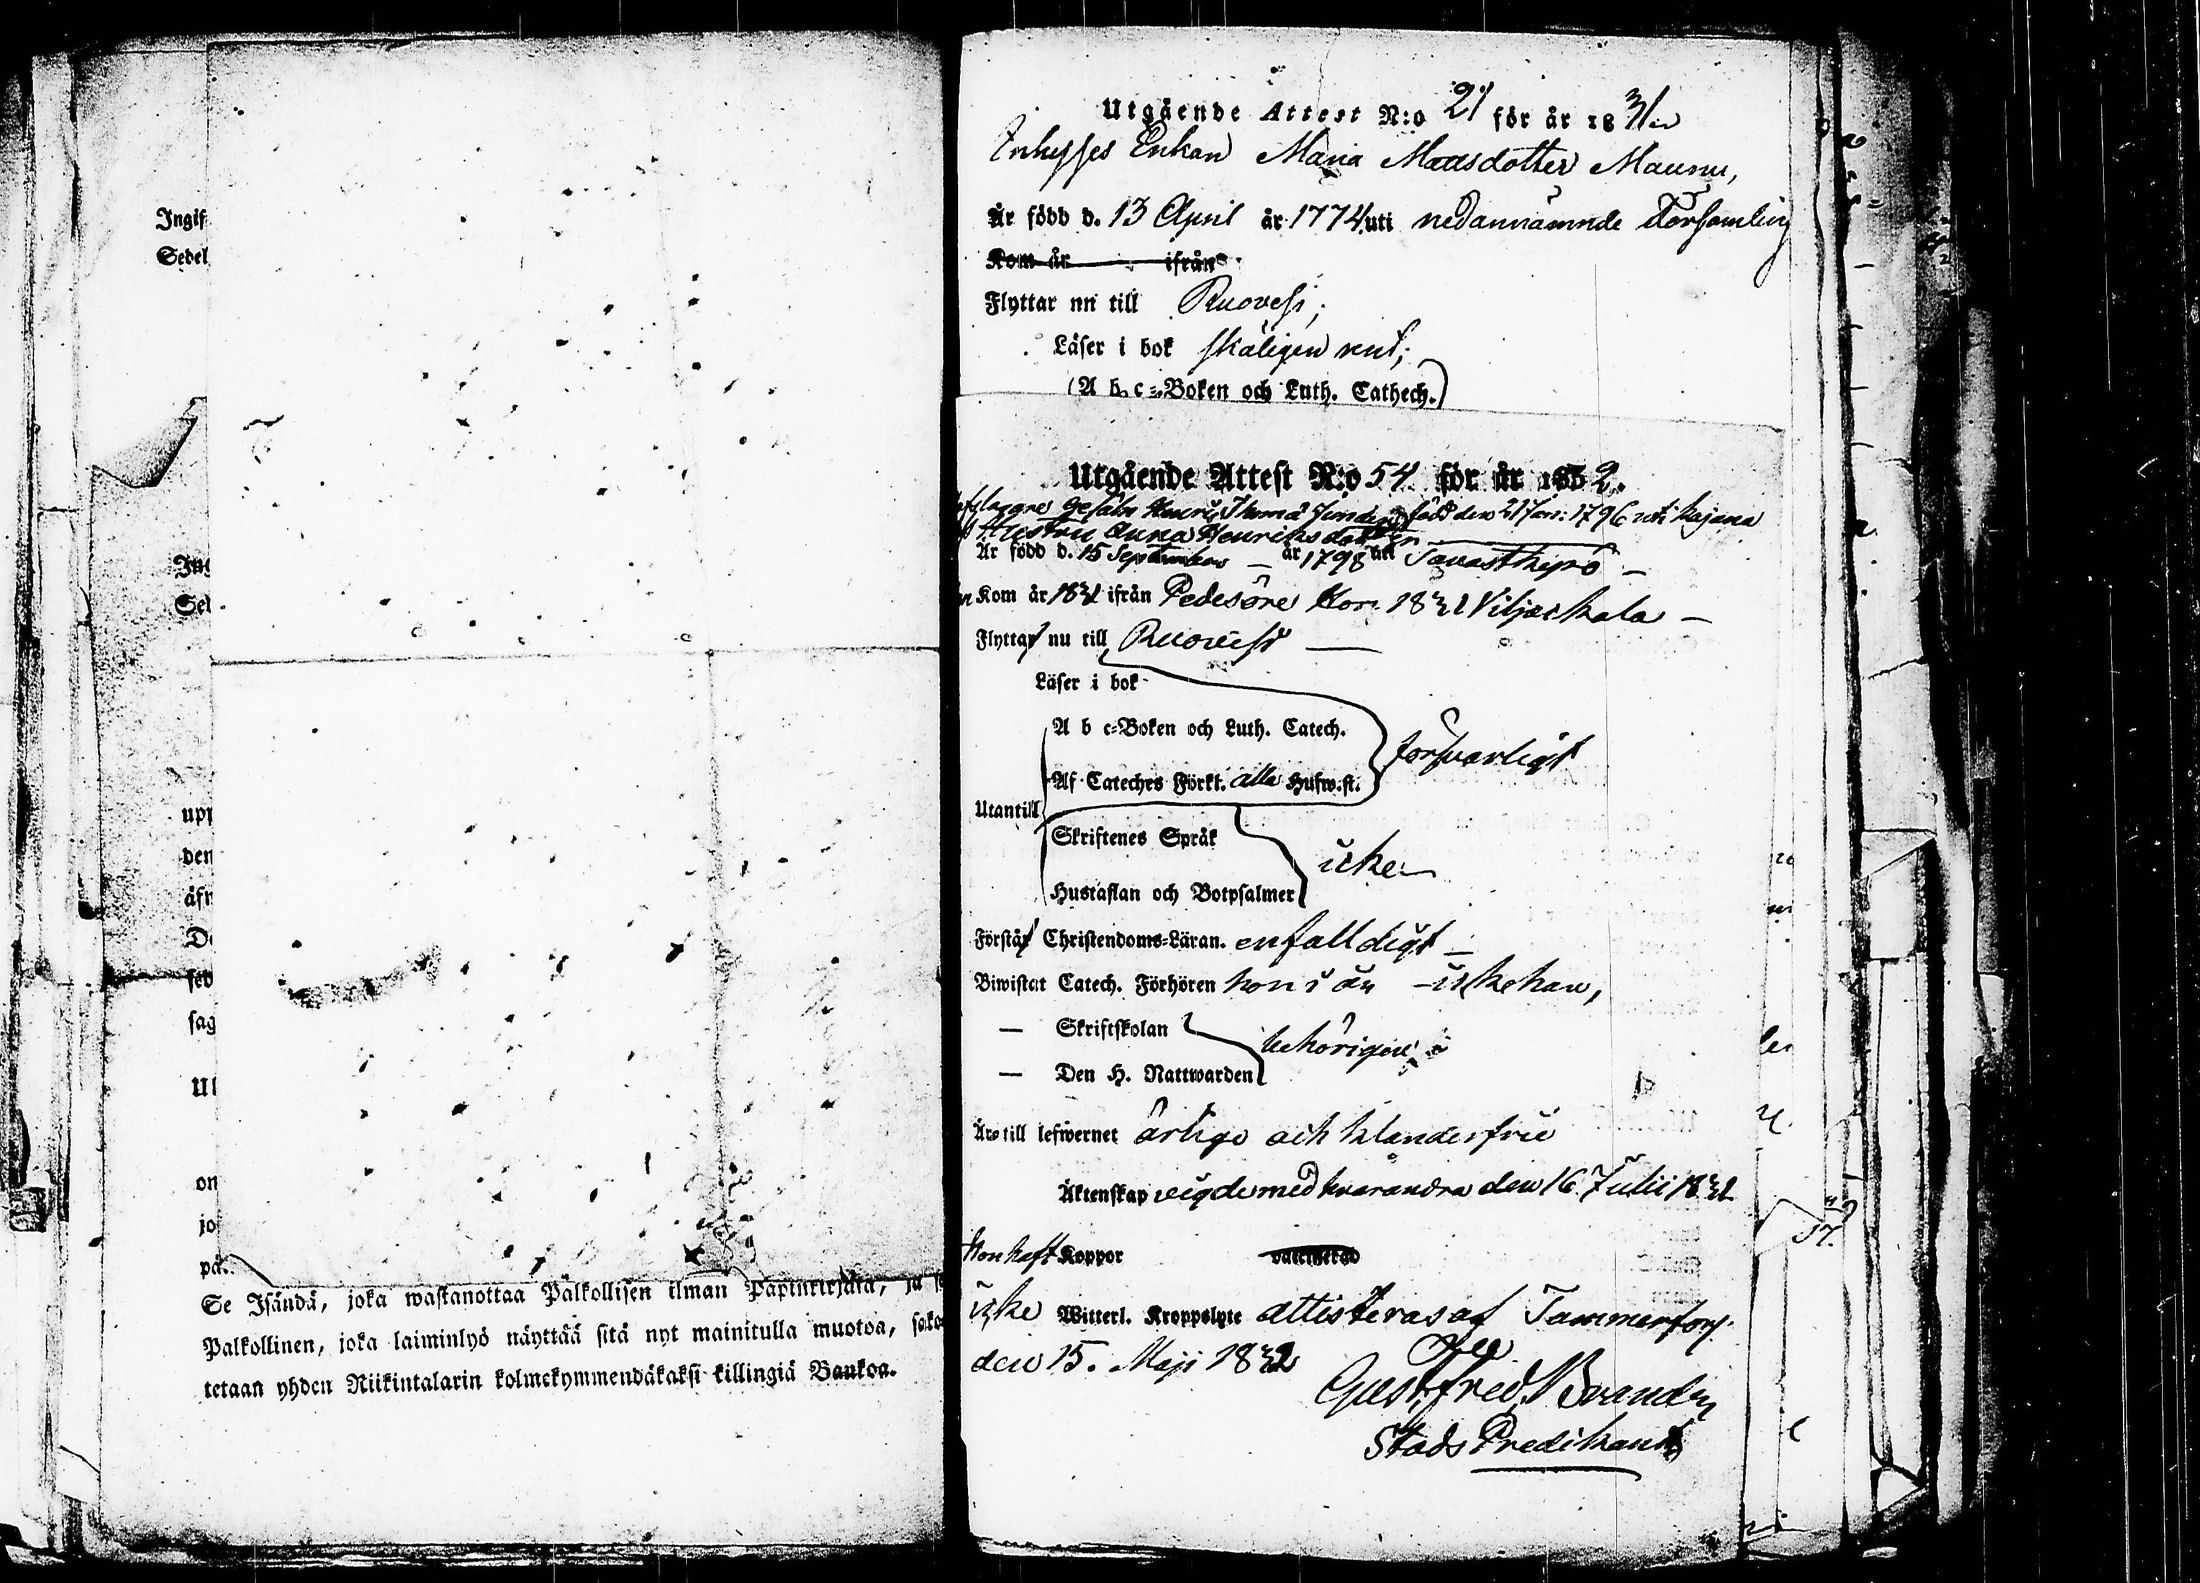 Ingif
Sedel
Ing
Sed
upp
den
äfn
De
sed
sag
Ul
on
jo
på
Se Isändä, joka wastanottaa Palkollisen ilman Papinkirjata, ja
Palkollinen, joka laiminlyö näyttää sitä nyt mainitulla muotoa, sako
tetaan yhden Riikintalarin kolmekymmendäkaksi killingiä Bankoa.
Utgående Attest N:o 21 för år 1831
Inhysses Enkan Maria Madsdotter Maunu,
Är född d. 13 April år 1774 uti nedannämnde Församling
Kom år ifrån
Flyttar nu till Ruovesi;
Läser i bok skäligen rent;
(A b c-Boken och Luth. Cathech.)
Utgående Attest N:o 54 för år 1832.
Gesälen Henric Thomä född den 21 Jan: 1796 uti Kajana
Hustru Anna Henriksdotter
Är född d. 15 September år 1798 uti Tavastkyrö
Kom år 1831 ifrån Pedesöre hon 1831 Viljakkala
Flyttar nu till Ruovesi
Läser i bok
A b c-Boken och Luth. Catech.
försvarligt
Af Cateches Förkl. alla Hufw.st.
Utantill
Skriftenes Språk
icke
Hustaflan och Botpsalmer
Förstår Christendoms-Läran. enfalldigt
Biwistat Catech. Förhören hon i år icke han,
— Skriftskolan
behörigen
— Den H. Nattwarden
Äro till lefwernet ärlige och klanderfrie
Äktenskap vigde med hvarandra den 16 Julii 1831
Hon haft Koppor vaccinerad
icke Witterl. Kroppslyte attesteras af Tammerfors
den 15. Maji 1832
Gust. Fred. Brander
Stads Predikant